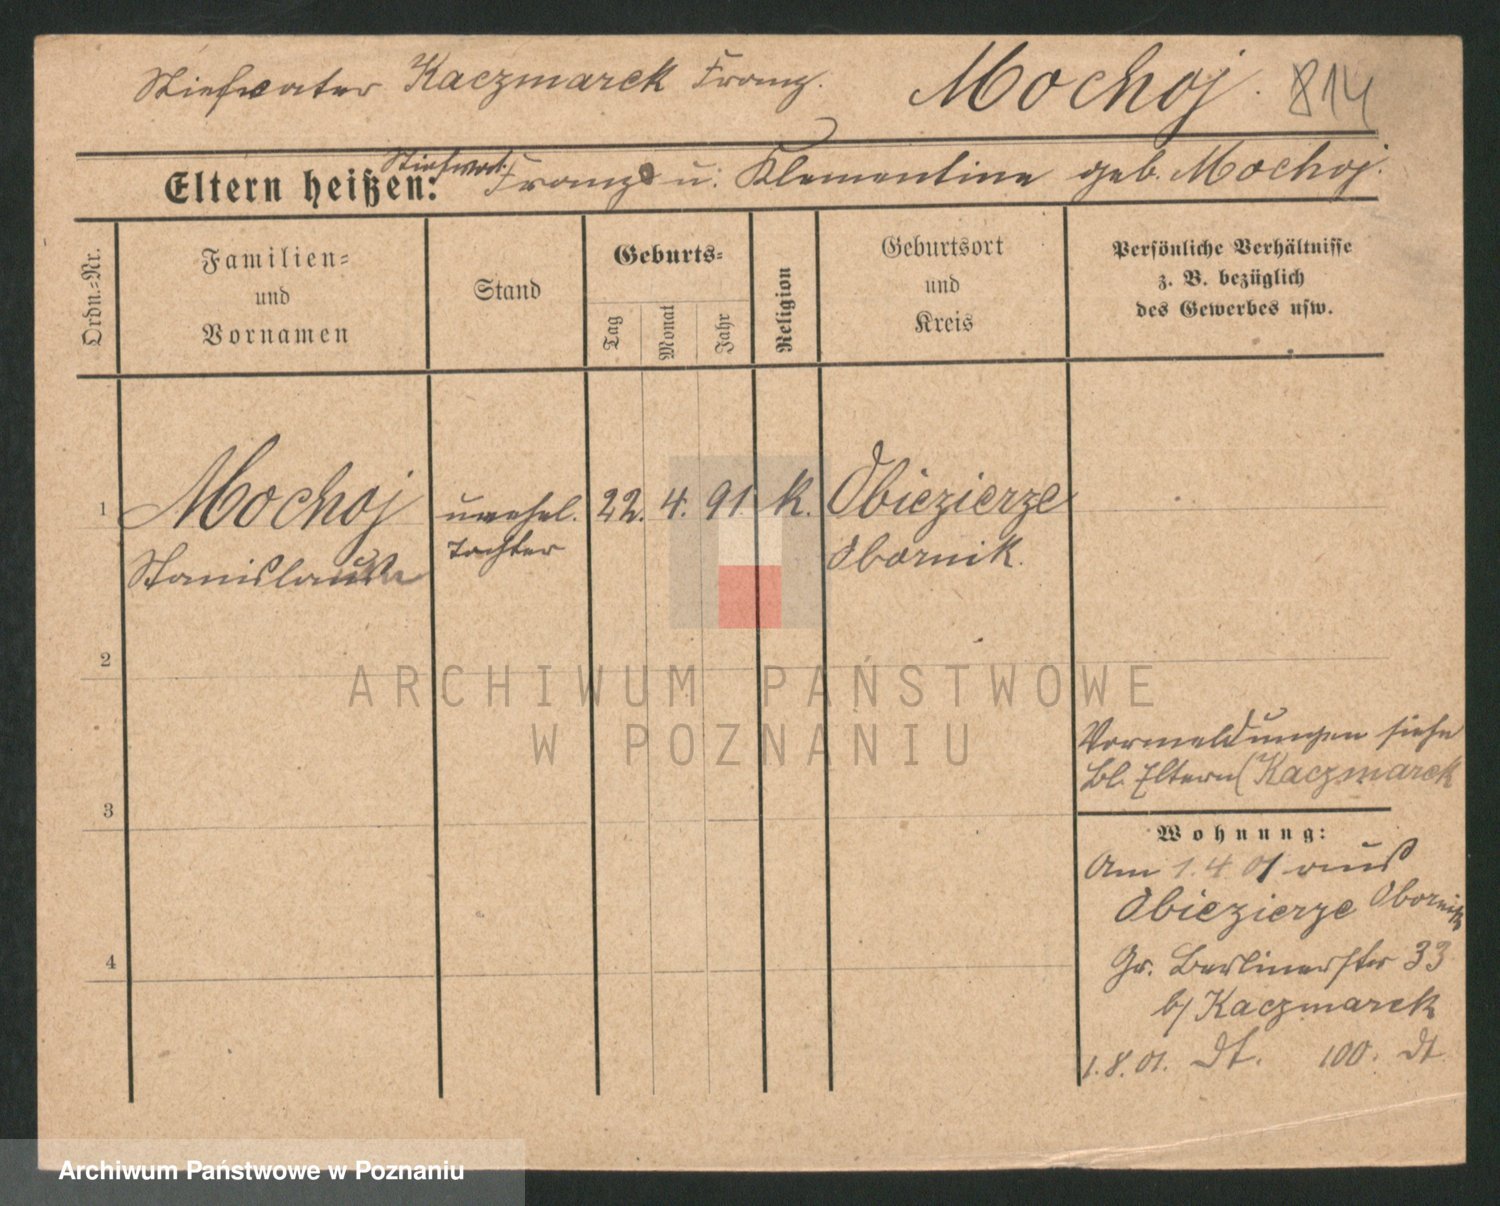 Stiefvater Kaczmarek Franz. Mochoj. 814
Eltern heißen: Stiefvat. Franz u. Klementine geb. Mochoj.
Ordn.=Nr.
Familien=
und
Vornamen
Stand
Geburts=
Tag
Monat
Jahr
Religion
Geburtsort
und
Kreis
Persönliche Verhältnisse
z. B. bezüglich
des Gewerbes usw.
1 Mochoj unehel. 22. 4. 91. k. Obiezierze
Tochter Obornik.
2
ARCHIWUM PAŃSTWOWE
W POZNANIU
Vormeldungen siehe
bl. Eltern (Kaczmarek
3
Wohnung:
Am 1.4 01 aus
Obiezierze Obornik
4
Gr. Berlinerstr 33
b/ Kaczmarek
1.8.01. dt. 100. dt
Archiwum Państwowe w Poznaniu